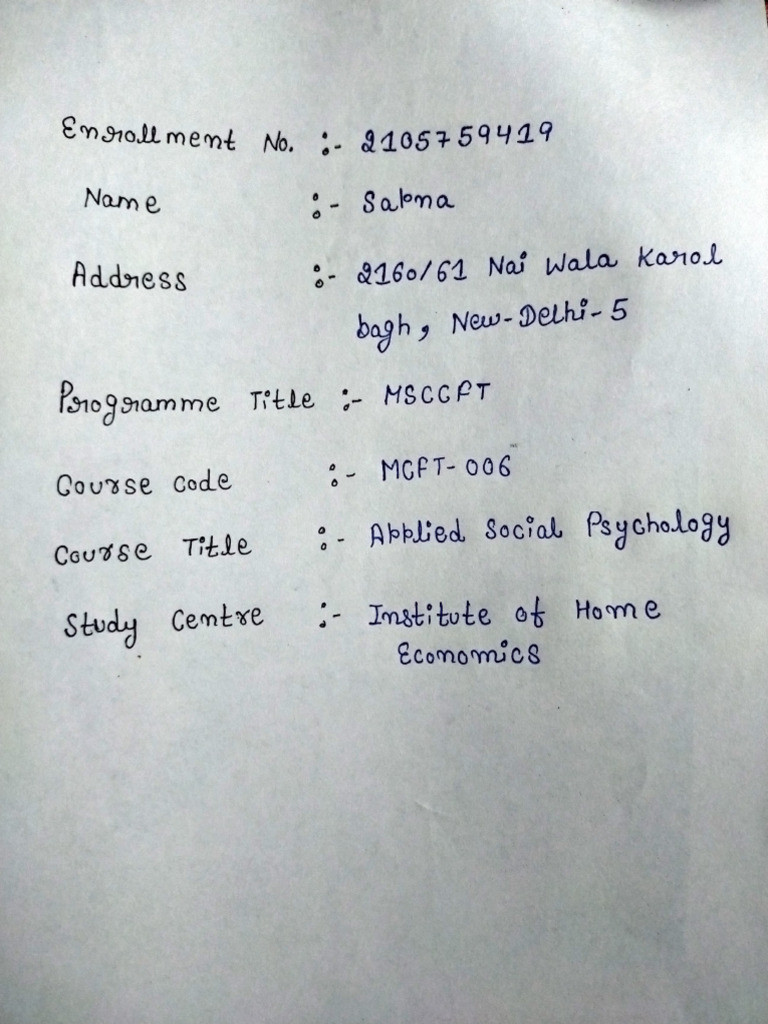 Enrollment No. :- 2105759419
Name :- Sapna
Address :- 2160/61 Nai Wala Karol
bagh, New-Delhi-5
Programme Title :- MSCCFT
Course Code :- MCFT-006
Course Title :- Applied Social Psychology
Study Centre :- Institute of Home
Economics